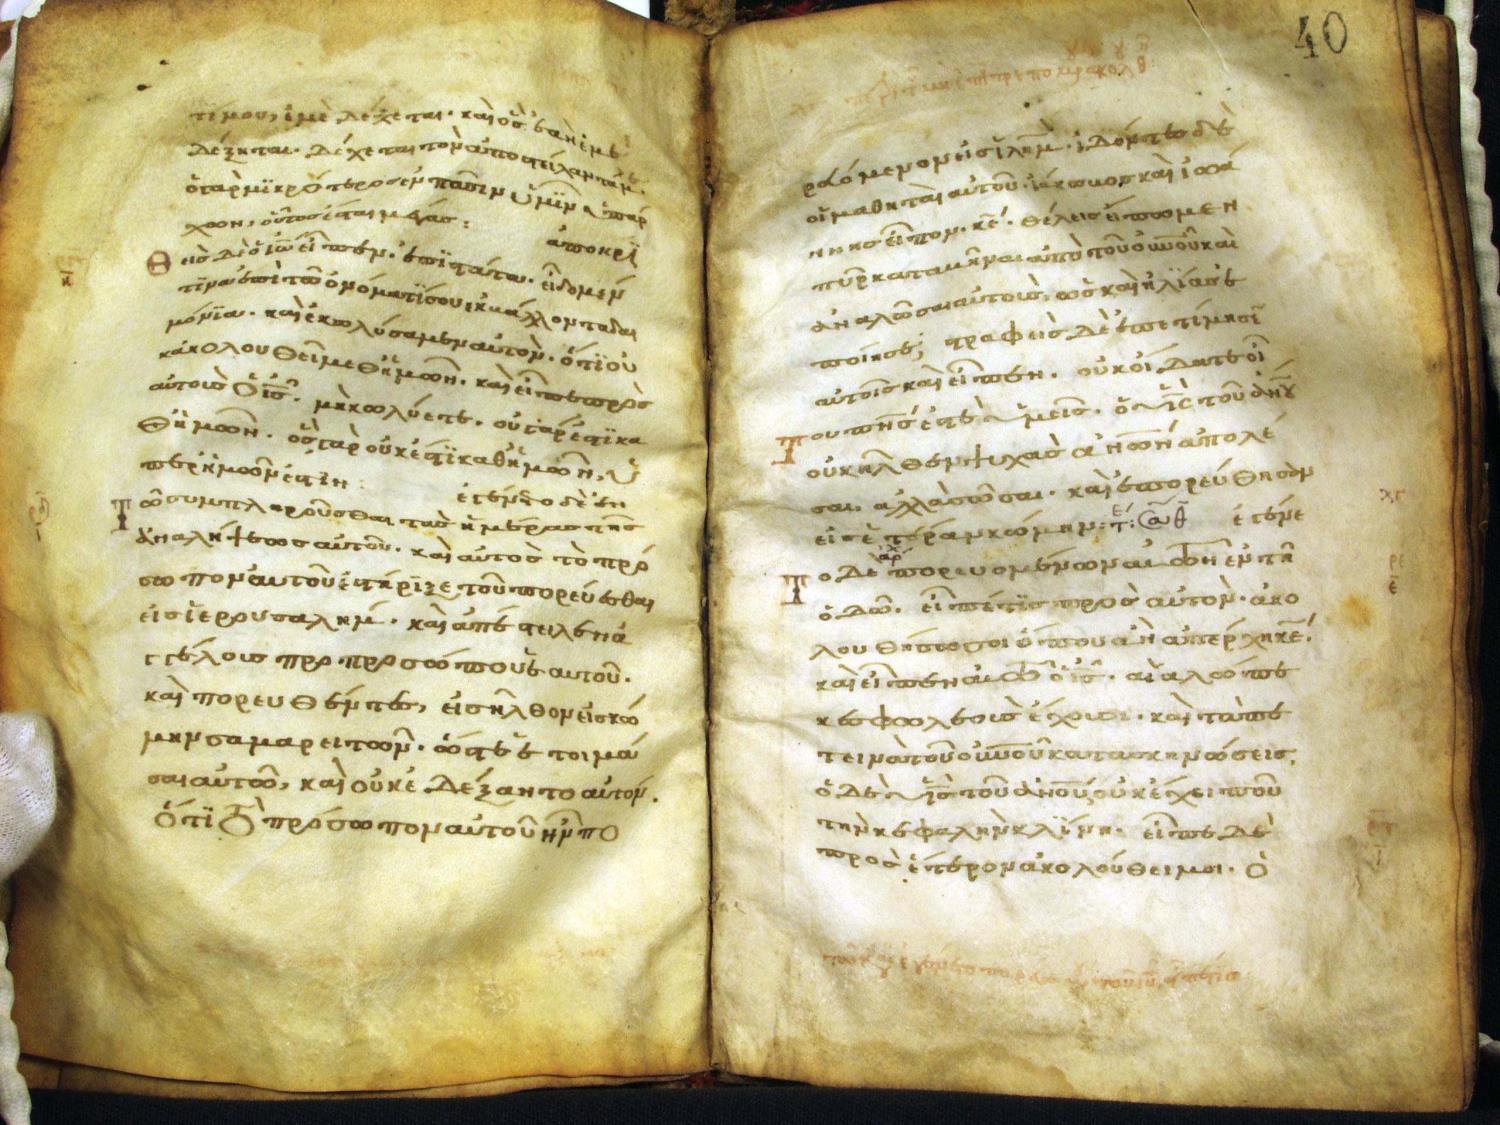 τί μου, ἐμὲ δέχεται· καὶ ὃς ἐὰν ἐμὲ
δέξηται. δέχεται τὸν ἀποστείλαντά μ͞ε.
ὁ γὰρ μϊκρότερος ἐν πᾶσιν ὑμῖν ὑπάρ
χων, οὗτος ἔσται μέγας:
ἀποκρϊ
θεὶς δὲ ὁ ἰω͞ εἶπεν. ἐπϊστάτα. εἴδομέν
τϊνα ἐπὶ τῶ ὀνόματΐ σου ἐκβάλλοντα δαι
μόνϊα. καὶ ἐκωλύσαμεν αὐτὸν. ὅτϊ οὐ
κ ἀκολουθεῖ μεθἡμῶν. καὶ εἶπε πρὸς
αὐτοὺς ὁ ι͞ς. μὴ κωλύετε. οὐ γάρ ἐστϊ κα
θἡμῶν. ὃς γὰρ οὐκ ἔστϊ καθἡμῶν, ὑ
πὲρ ἡμῶν ἐστὶν:
ἐγένετο δὲ ἐν
τῶ συμπληροῦσθαι τὰς ἡμέρας τῆς
ἀναλήψεως αὐτοῦ. καὶ αὐτὸς τὸ πρό
σωπον αὐτοῦ ἐστήρϊξε τοῦ πορεύεσθαι
εἰς ἱερουσαλήμ. καὶ ἀπέστειλεν ἀ
γγέλους πρὸ προσώπου αὐτοῦ.
καὶ πορευθέντες, εἰσῆλθον εἰς κώ
μην σαμαρειτῶν. ὥστε ἑτοιμά
σαι αὐτῶ, καὶ οὐκ ἐδέξαντο αὐτόν.
ὅτϊ τὸ πρόσωπον αὐτοῦ ἦν πο
40
ρευόμενον εἰς ϊλημ͞. ἰδόντες δὲ
οἱ μαθηταὶ αὐτοῦ ἰάκωβος καὶ ἰωά
ννης εἶπον. κ͞ε. θέλεις εἴπωμεν
πῦρ καταβῆναι ἀπὸ τοῦ ου͞νοῦ καὶ
ἀναλῶσαι αὐτούς. ὡς καὶ ἠλίας ἐ
ποίησε; στραφεὶς δὲ ἐπετίμησε͞
αὐτοῖς καὶ εἶπεν. οὐκ οἴδατε οἵ
ου πν͞ς ἐστε ὑμεῖς. ὁ υ͞ς τοῦ ἀν͞ου
οὐκ ἦλθεν ψυχὰς ἀν͞ων ἀπολέ
σαι, ἀλλὰ σῶσαι. καὶ ἐπορεύθησαν
εἰς ἑτέραν κώμην:
ἐγένε
το δὲ πορευομένων αὐτῶν ἐν τῆ
ὁδῶ. εἶπέ τϊς πρὸς αὐτὸν. ἀκο
λουθήσω σοι ὅπου ἂν ἀπέρχη κ͞ε.
καὶ εἶπεν αὐτῶ ὁ ι͞ς. αἱ αλώπε
κες φωλεοὺς ἔχουσι. καὶ τὰ πε
τεινὰ τοῦ ου͞νοῦ κατασκηνώσεις.
ὁ δὲ υ͞ς τοῦ ἀν͞ου, οὐκ ἔχει ποῦ
τὴν κεφαλὴν κλΐνη. εἶπε δὲ
πρὸς ἕτερον ἀκολούθει μοι. ὁ